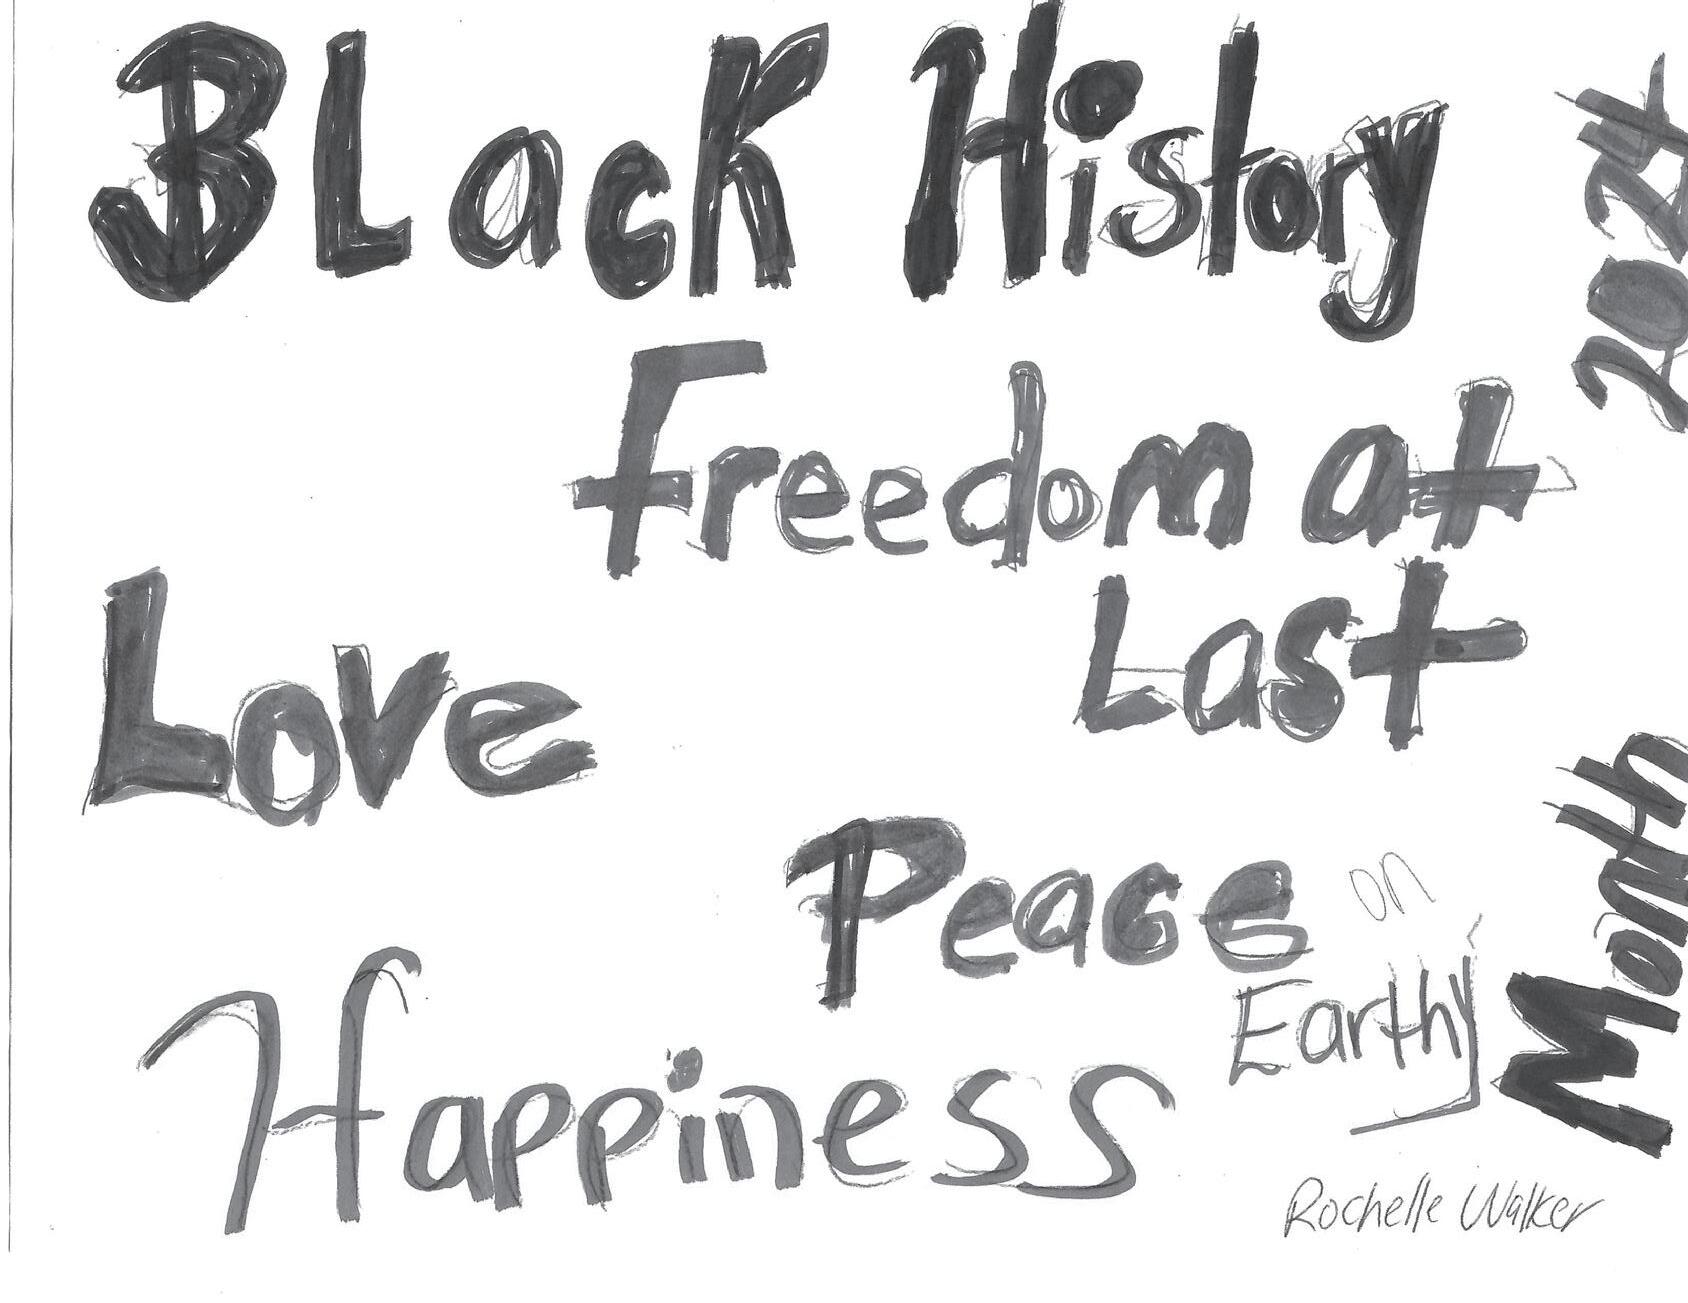 BLacK History
Freedom at
Last
Love
Peace on
Earthy
Happiness
Month
2024
Rochelle Walker